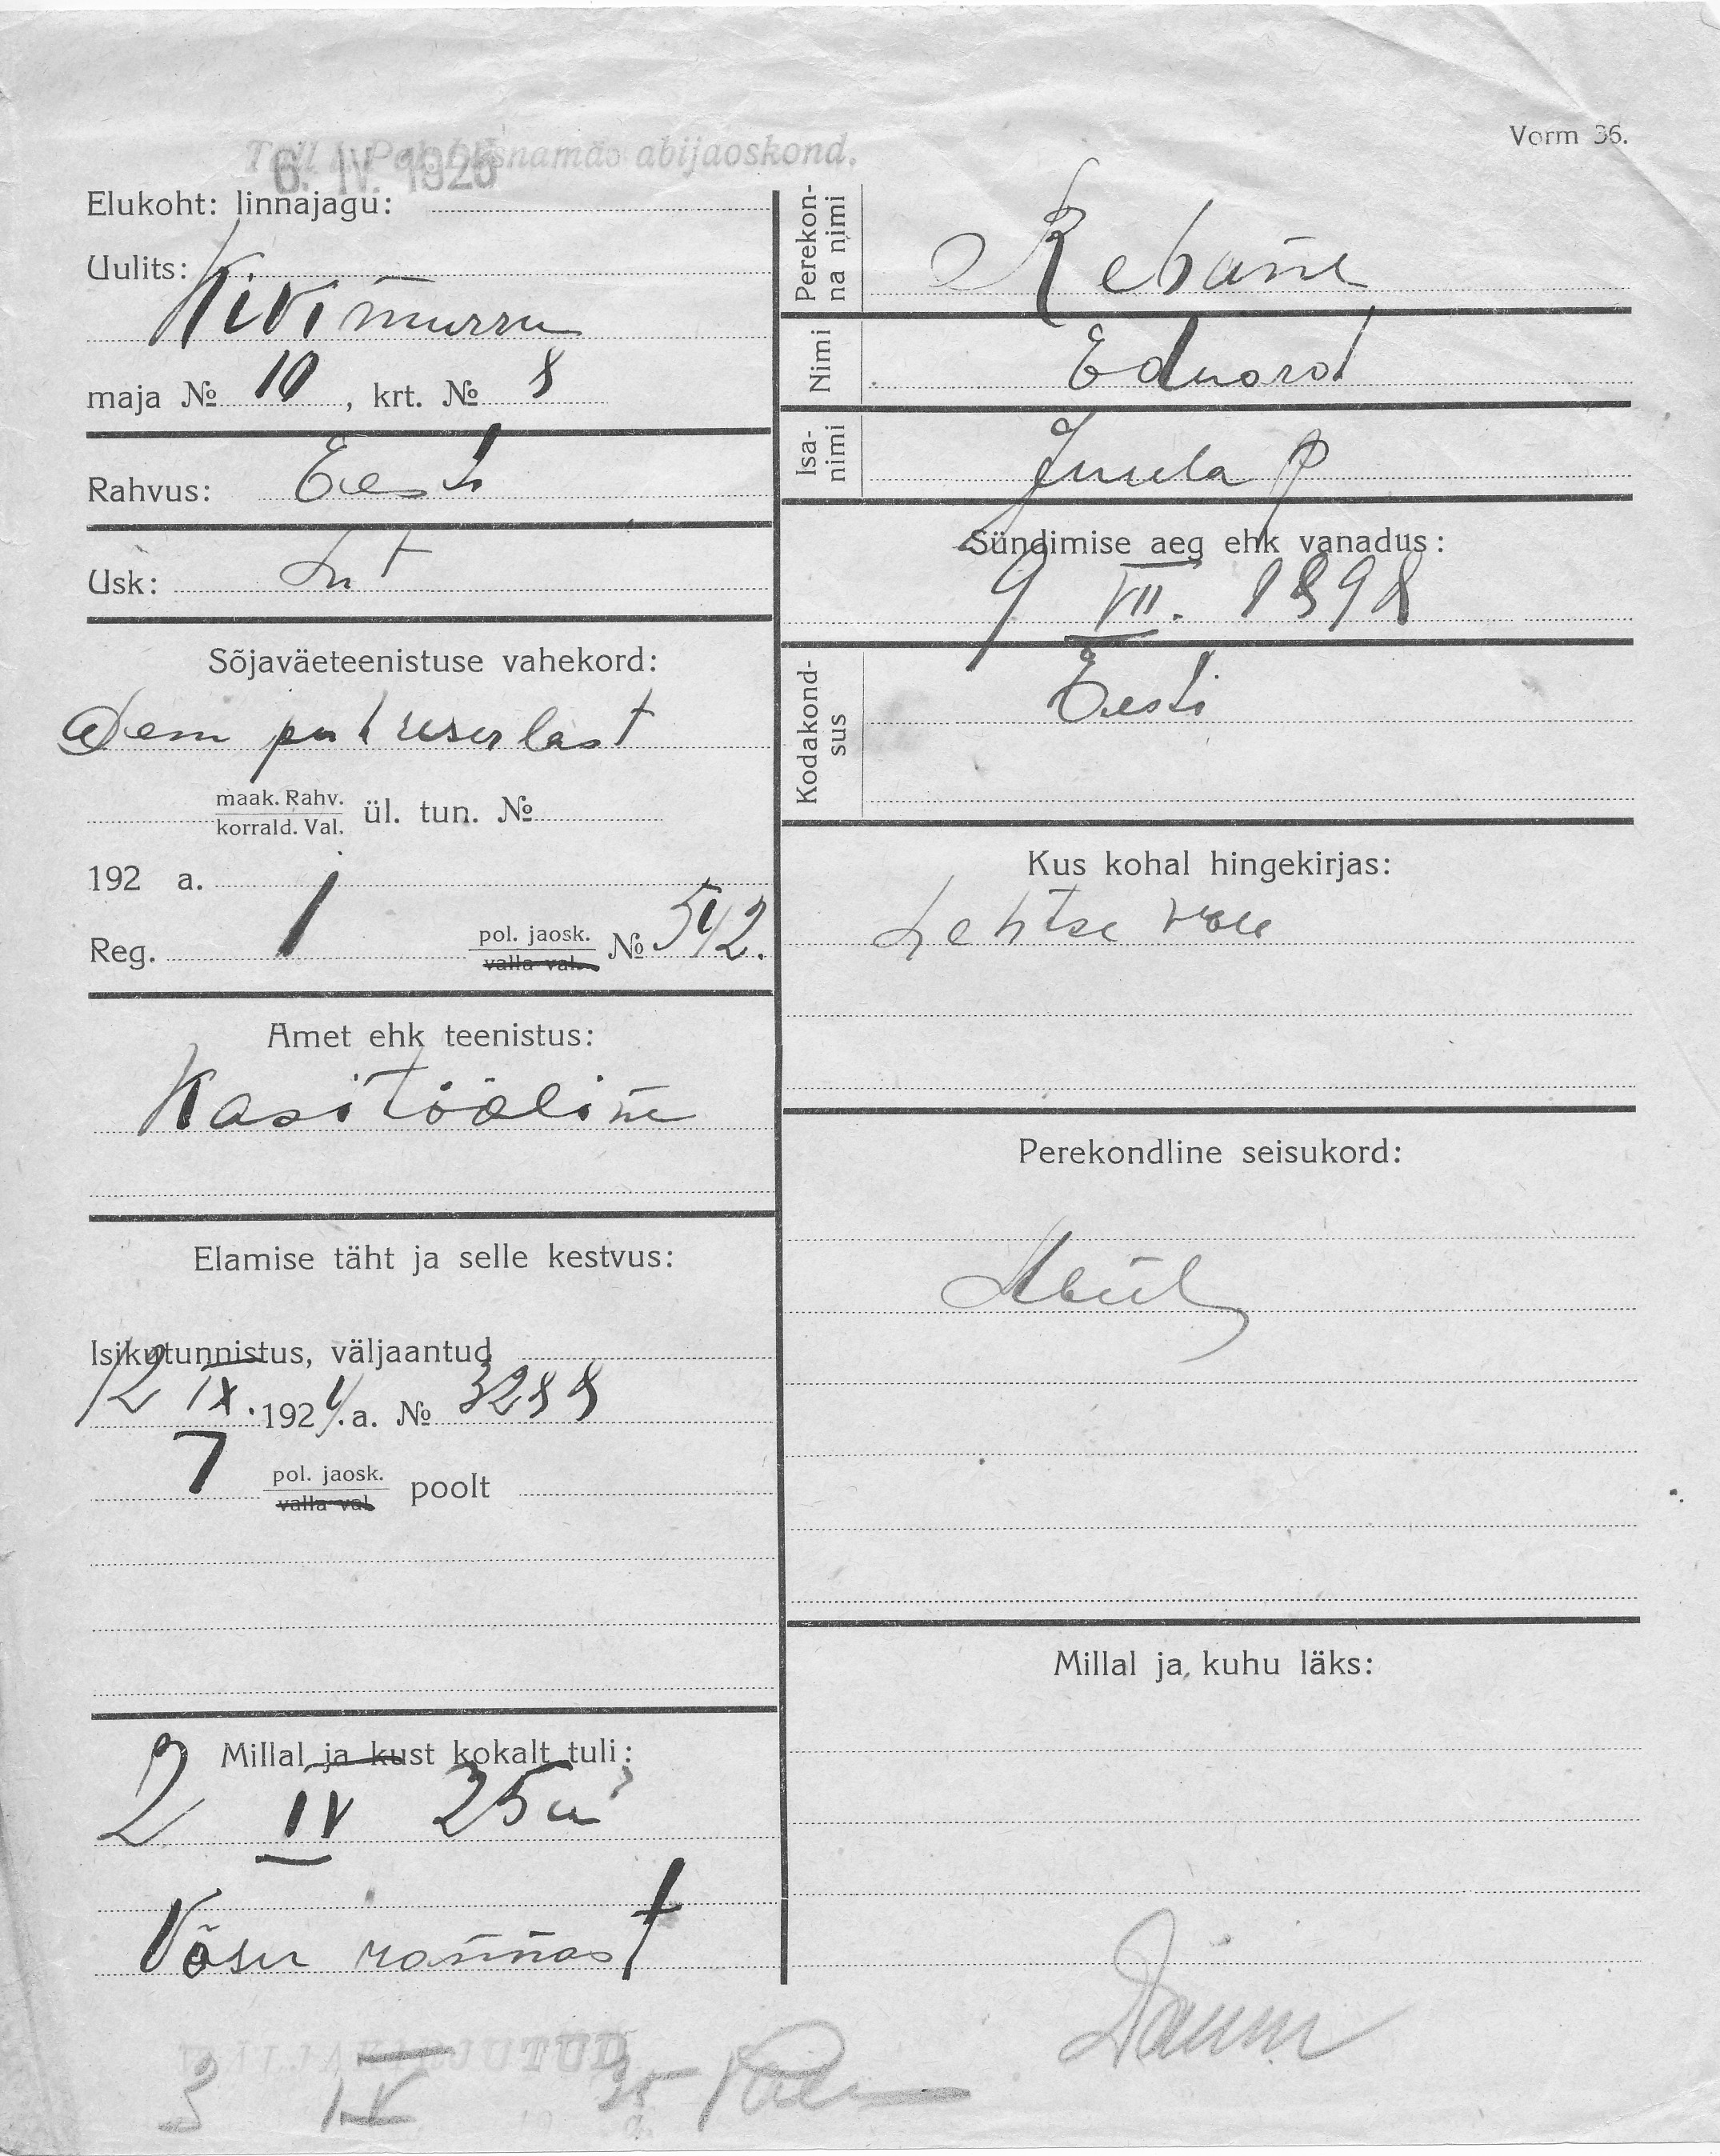 Vorm 36.
6. IV. 1925
abijaoskond.
Elukoht: linnajagu:
Uulits:
Kivimurru
maja № 10, krt. № 8
Rahvus: Eesti
Usk: Lut
Sõjaväeteenistuse vahekord:
maak. Rahv.
korrald. Val. ül. tun. №
192 a.
Reg. 1 pol. jaosk. № 542.
valla val.
Amet ehk teenistus:
Käsitööline
Elamise täht ja selle kestvus:
Isikutunnistus, väljaantud
12 IX. 1924. a. № 3288
7 pol. jaosk. poolt
valla val.
Millal ja kust kokalt tuli:
2 IV 25 a
Võsu rannast
Perekonna nimi
Rebane
Nimi
Eduard
Isanimi
Juula p
Sündimise aeg ehk vanadus:
9 VII. 1898
Kodakondsus
Eesti
Kus kohal hingekirjas:
Lehtse vall
Perekondline seisukord:
Millal ja kuhu läks:
3 IV 25